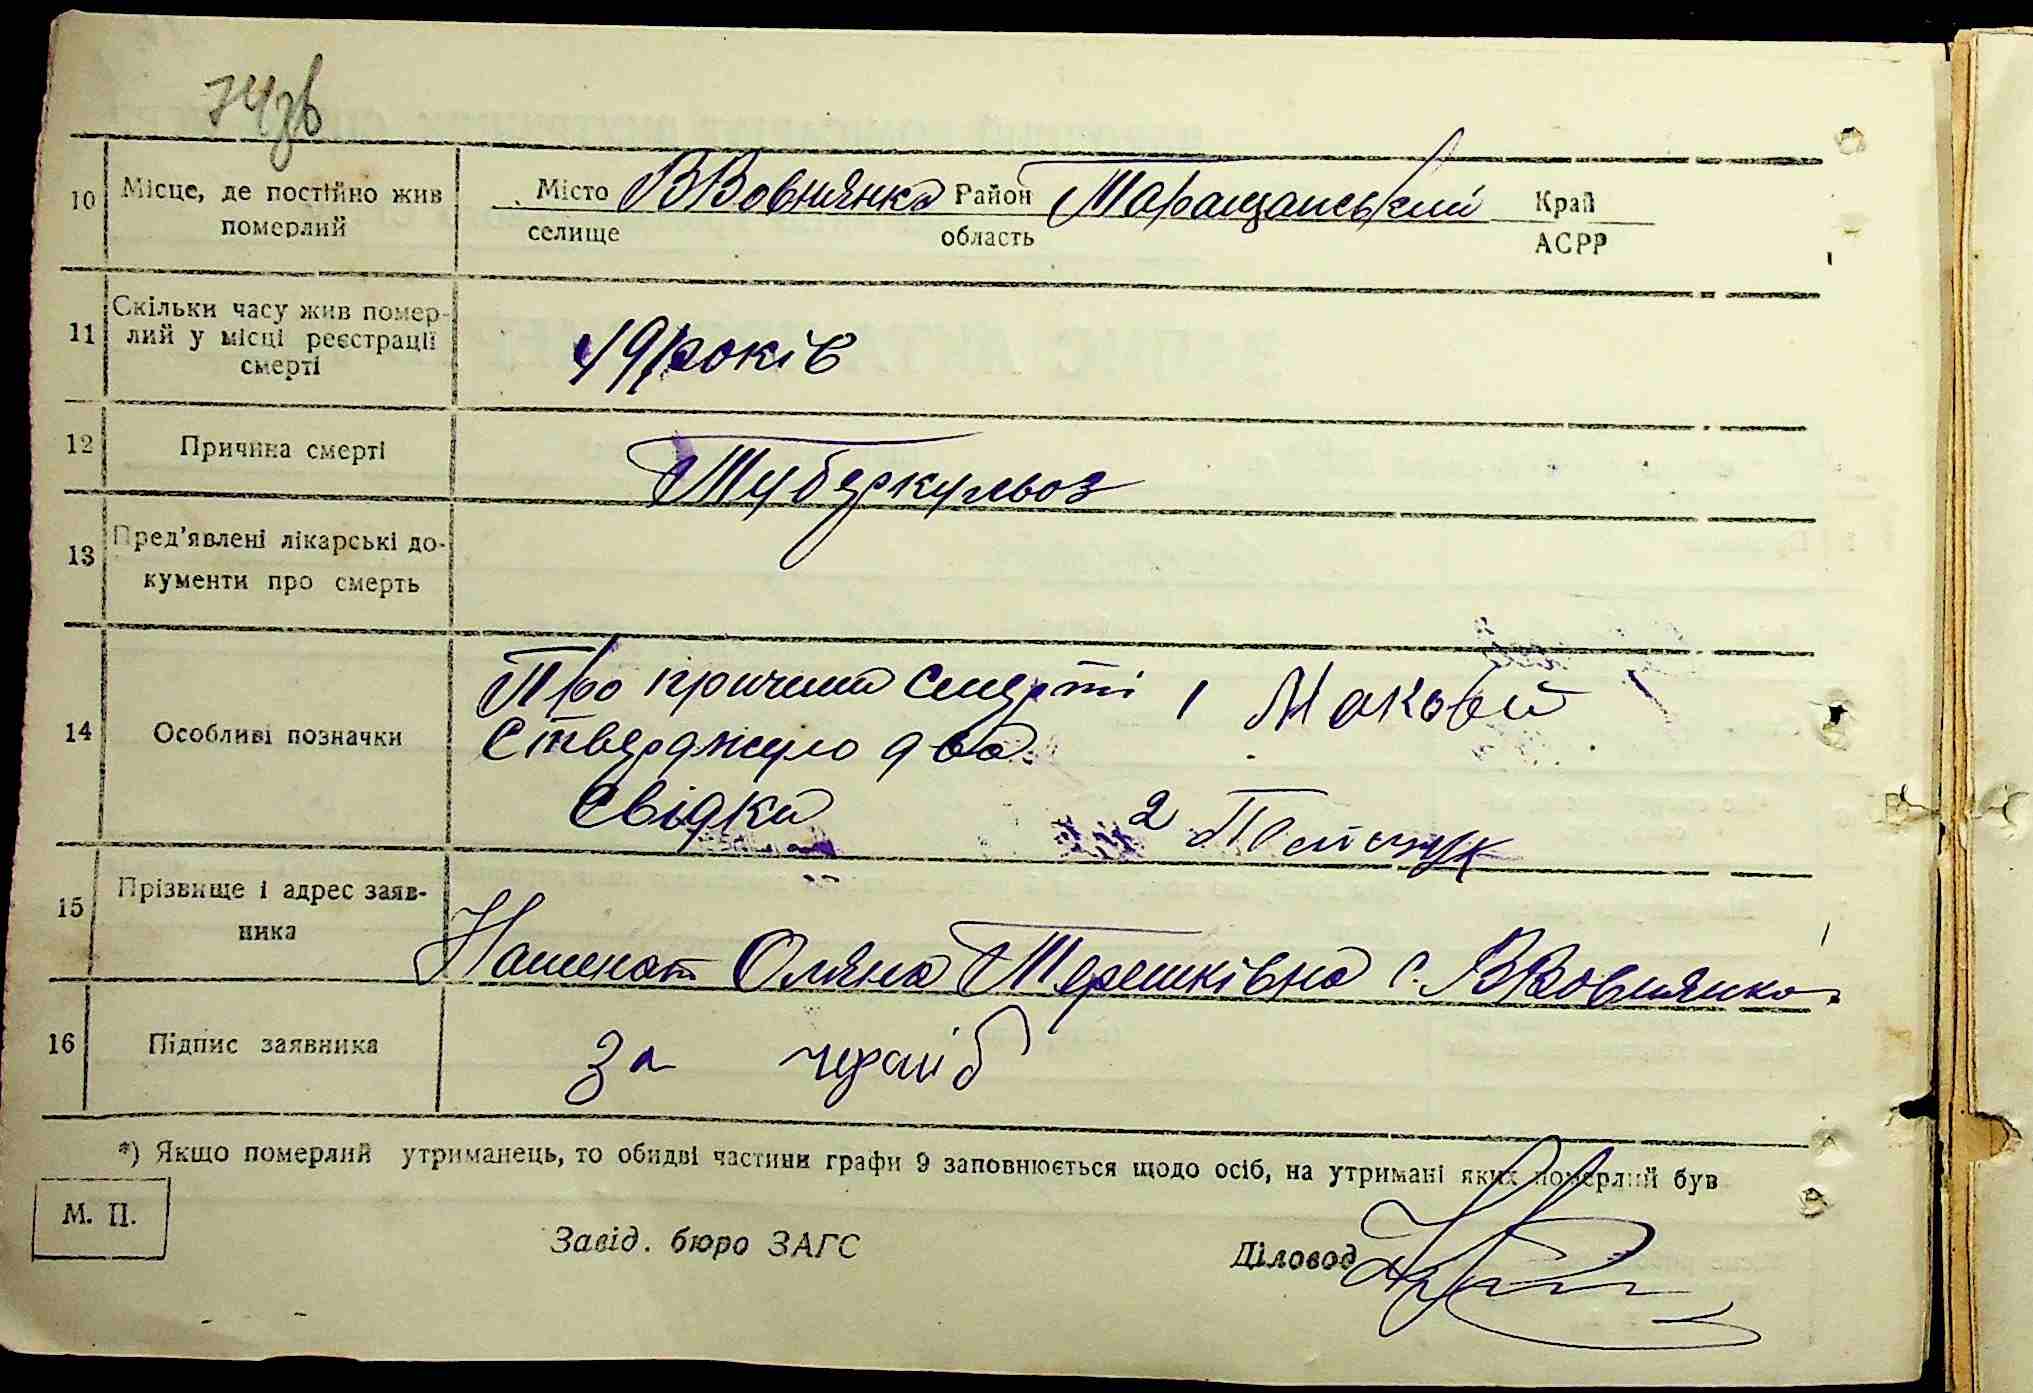 74зв
10 Місце, де постійно жив
померлий
Місто ВВовнянка Район Таращанський Край
селище область АСРР
11 Скільки часу жив помер-
лий у місці реєстрації
смерті
49 років
12 Причина смерті
Туберкульоз
13 Пред'явлені лікарські до-
кументи про смерть
14 Особливі позначки
Про причини смерті 1 Маковей
стверджуло два
свідки 2
15 Прізвище і адрес заяв-
ника
Оляна Терешківна с. ВВовнянка
16 Підпис заявника
За
*) Якщо померлий утриманець, то обидві частини графи 9 заповнюється щодо осіб, на утримані яких померлий був
М. П.
Завід. бюро ЗАГС Діловод